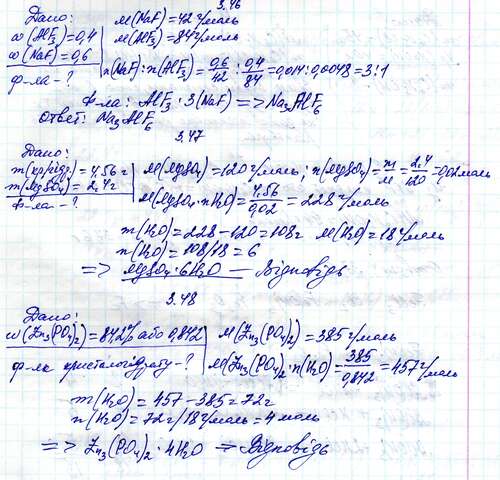 3.46
Дано:
ω(AlF₃)=0,4
ω(NaF)=0,6
ф-ла-?
M(NaF)=42 г/моль
M(AlF₃)=84 г/моль
n(NaF):n(AlF₃)=0,6/42:0,4/84=0,014:0,0048=3:1
Ф-ла: AlF₃·3(NaF)=>Na₃AlF₆
Ответ: Na₃AlF₆
3.47
Дано:
m(кр/гідр.)=4,56 г
m(MgSO₄)=2,4 г
Ф-ла-?
M(MgSO₄)=120 г/моль; n(MgSO₄)=m/M=2,4/120=0,02 моль
M(MgSO₄·nH₂O)=4,56/0,02=228 г/моль
m(H₂O)=228-120=108 г M(H₂O)=18 г/моль
n(H₂O)=108/18=6
=> MgSO₄·6H₂O – Відповідь
3.48
Дано:
ω(Zn₃(PO₄)₂)=84,2% або 0,842
ф-ла кристалогідрату-?
M(Zn₃(PO₄)₂)=385 г/моль
M(Zn₃(PO₄)₂·n(H₂O)=385/0,842=457 г/моль
m(H₂O)=457-385=72 г
n(H₂O)=72 г/18 г/моль=4 моль
=> Zn₃(PO₄)₂·4H₂O => Відповідь